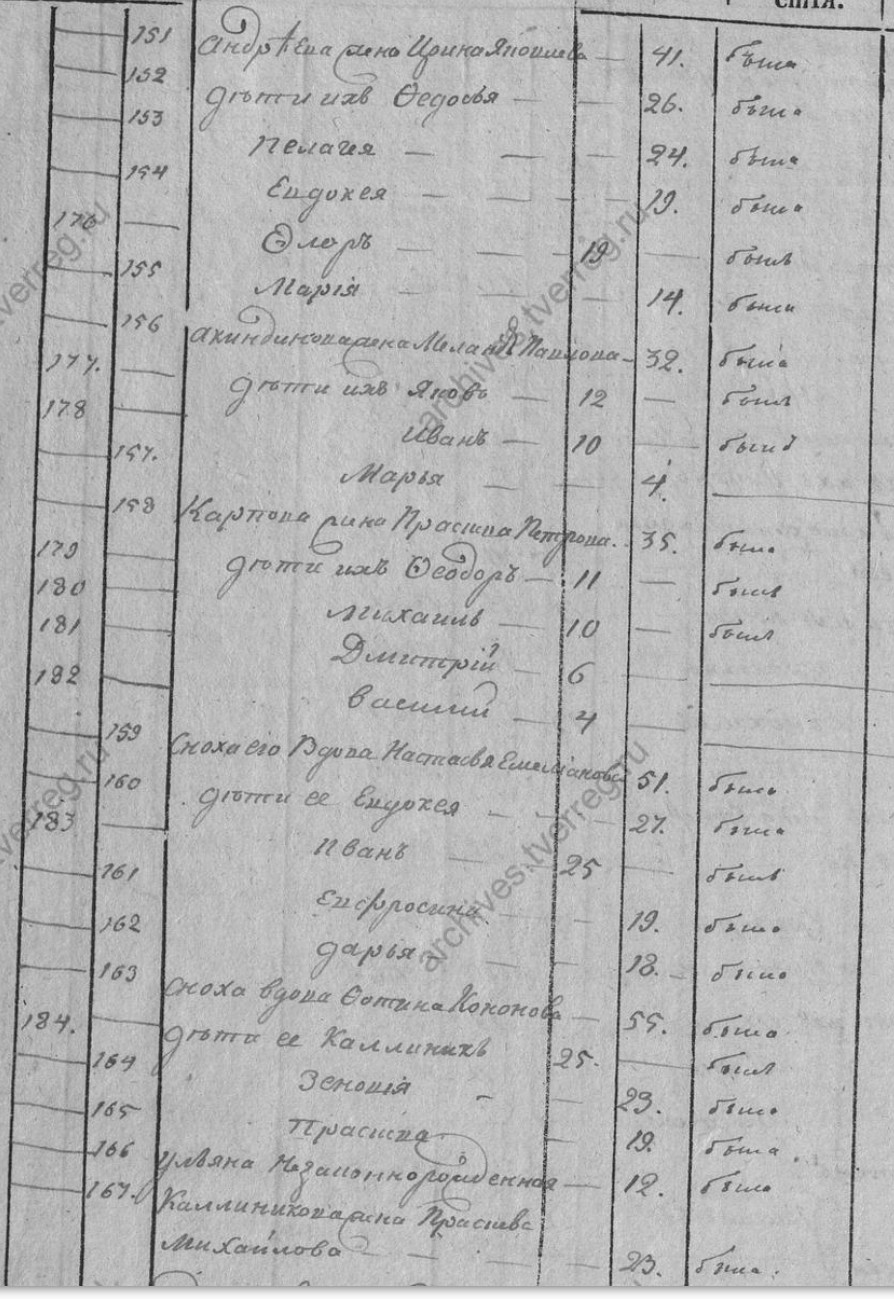 ствія.
151 Андрѣева жена Ирина Яковлева — 41. была
152 дѣти ихъ Ѳедосья — — 26. была
153 Пелагея — — — 24. была
154 Евдокея — — — 19. была
176 Ѳлоръ — — 19 — былъ
155 Марія — — — 14. была
156 Акиндинова жена Меланія Павлова — 32. была
177. дѣти ихъ Яковъ — 12 — былъ
178 Иванъ — 10 — былъ
157. Марья — — 4.
158 Карпова жена Прасковья Петрова 35. была
179 дѣти ихъ Ѳеодоръ — 11 — былъ
180 Михаилъ — 10 — былъ
181 Дмитрій — 6 —
182 Василий — 4 —
159 Сноха его вдова Настасья Емеліанова 51. была
160 дѣти ее Евдокея — — 27. была
183 Иванъ — 25 — былъ
161 Евфросина — — 19. была
162 Дарья — — 18. была
163 Сноха вдова Ѳотина Кононова — 55. была
184. дѣти ее Каллиникъ 25. — былъ
164 Зеновія — — 23. была
165 Прасковья — 19. была.
166 Ульяна незаконнорожденная — 12. была
167. Каллиникова жена Прасковья
Михайлова — — 23. была.
archives.tverreg.ru
archives.tverreg.ru